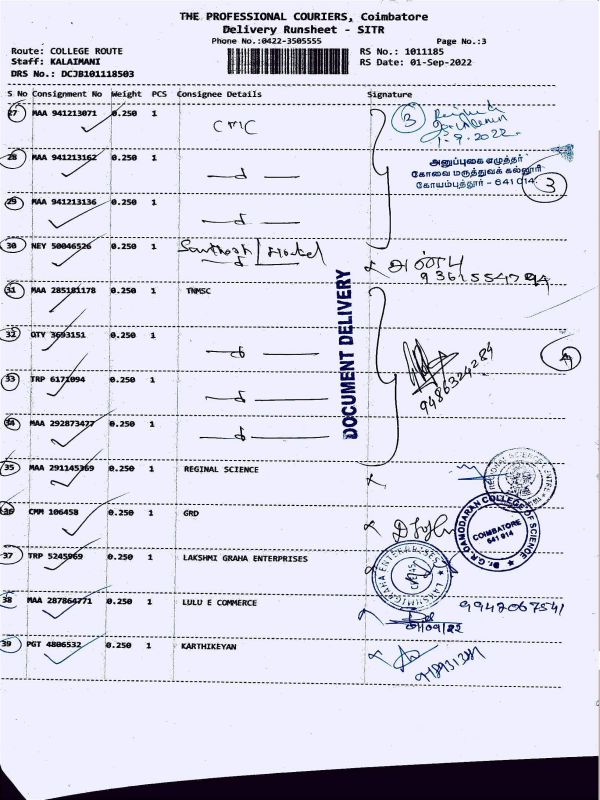 THE PROFESSIONAL COURIERS, Coimbatore
Delivery Runsheet - SITR
Phone No.:0422-3505555 Page No.:3
Route: COLLEGE ROUTE RS No.: 1011185
Staff: KALAIMANI RS Date: 01-Sep-2022
DRS No.: DCJB101118503
S No Consignment No Weight PCS Consignee Details Signature
27 MAA 941213071 0.250 1 CMC 3
1-9-2022
28 MAA 941213162 0.250 1
அனுப்புகை எழுத்தர்
கோவை மருத்துவக் கல்லூரி
கோயம்புத்தூர் - 641 014. 3
29 MAA 941213136 0.250 1
30 NEY 50046526 0.250 1 அன்பு
31 MAA 285181178 0.250 1 TNMSC
DOCUMENT DELIVERY
32 QTY 3693151 0.250 1
33 TRP 6171094 0.250 1 9486324284
34 MAA 292873477 0.250 1
35 MAA 291145369 0.250 1 REGINAL SCIENCE
36 CMM 106458 0.250 1 GRD
Dr. G.R. DAMODARAN COLLEGE OF SCIENCE
COIMBATORE
641 014
37 TRP 5245969 0.250 1 LAKSHMI GRAHA ENTERPRISES
LAKSHMIGRAHA ENTERPRISES
38 MAA 287864771 0.250 1 LULU E COMMERCE 9942067541
01/09/22
39 PGT 4806532 0.250 1 KARTHIKEYAN